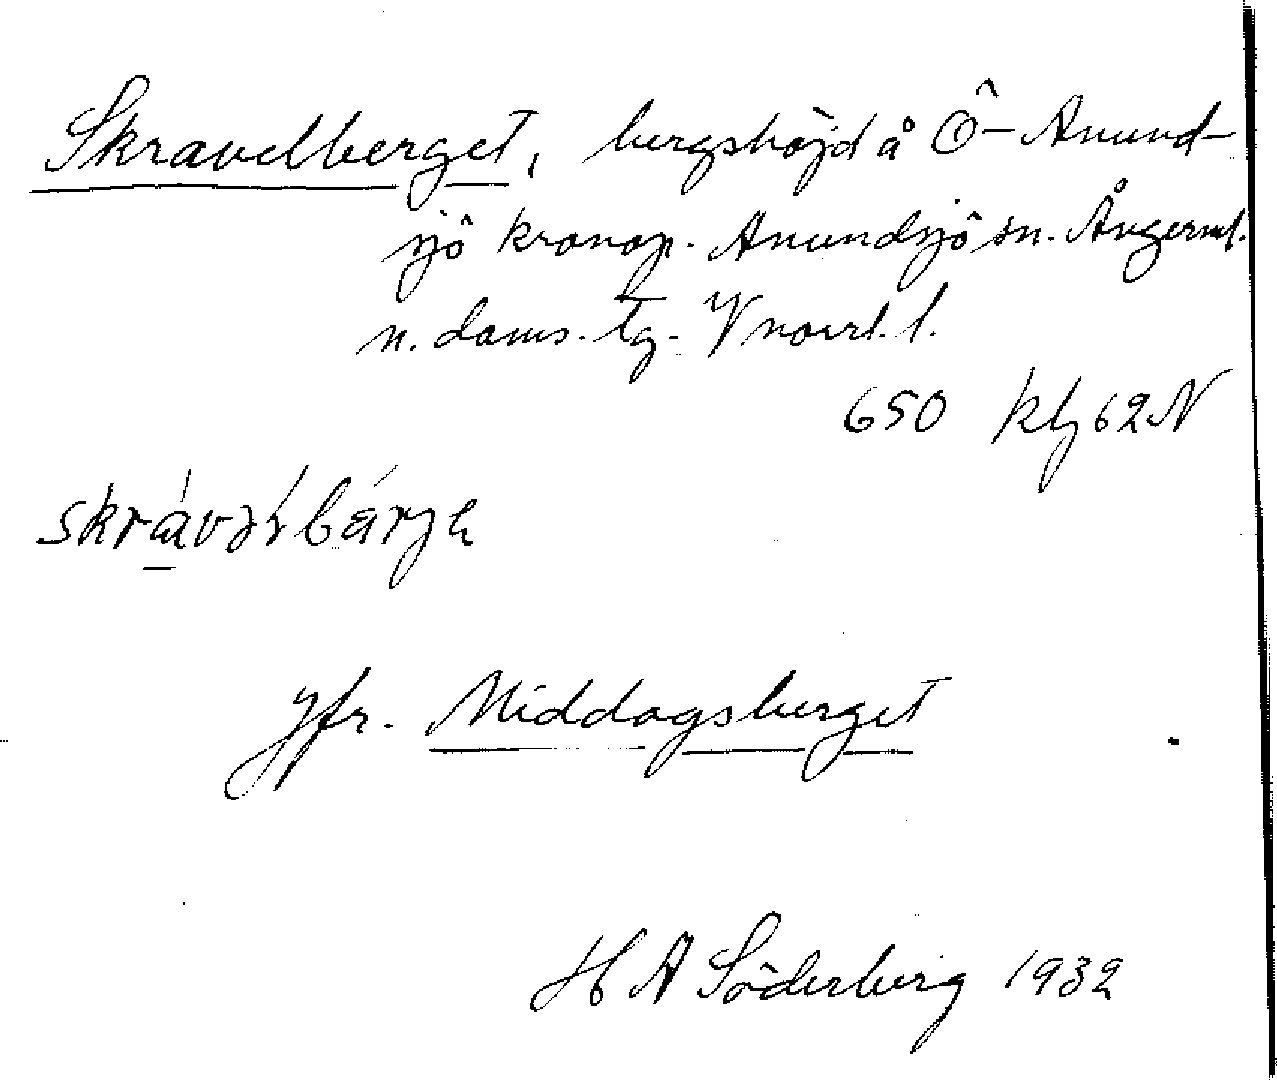 Skravelberget, bergshöjd å Ö-Anund-
sjö kronop. Anundsjö sn. Ångerml.
n. doms. tg. V norrl. l.
650 kbz 62 N
Jfr. Middagsberget
H A Söderberg 1932